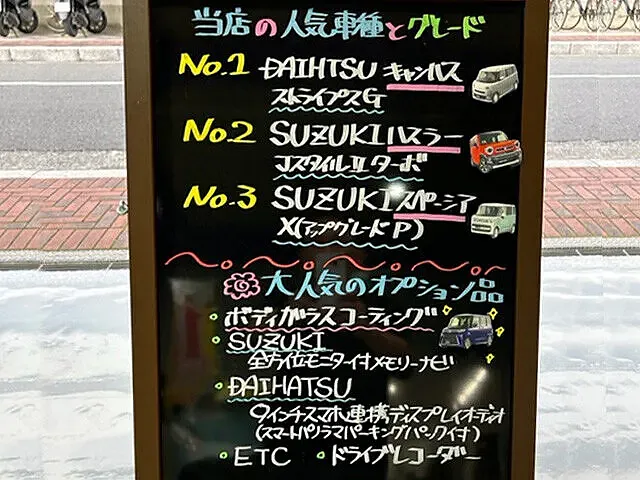 当店の人気車種とグレード
No.1 DAIHTSU キャンバス
ストライプスG
No.2 SUZUKI ハスラー
JスタイルII ターボ
No.3 SUZUKI スペーシア
X(アップグレードP)
大人気のオプション品
・ボディガラスコーティング
・SUZUKI
全方位モニター付メモリーナビ!!
・DAIHATSU
9インチスマホ連携ディスプレイオーディオ
(スマートパノラマパーキングパック付)
・ETC ・ドライブレコーダー